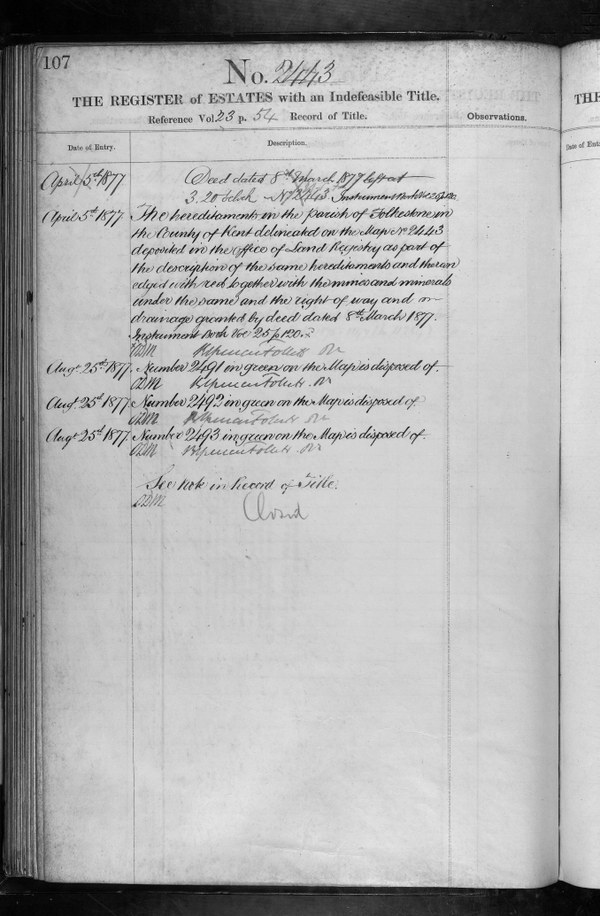 107
No. 2443
THE REGISTER of ESTATES with an Indefeasible Title.
Reference Vol. 23 p. 54 Record of Title.
Observations.
Date of Entry.
Description.
April 5th 1877 Deed dated 8th March 1877 left at
3.20 o'clock No 2443 Instrument Book Vol 25 p 120
April 5th 1877 The hereditaments in the parish of Folkestone in
the County of Kent delineated on the Map No 2443
deposited in the Office of Land Registry as part of
the description of the same hereditaments and thereon
edged with red together with the mines and minerals
under the same and the right of way and
drainage granted by deed dated 8th March 1877.
Instrument Book Vol 25 p 120.
Augt 25th 1877. Number 2491 in green on the Map is disposed of.
Augt 25th 1877. Number 2492 in green on the Map is disposed of
Augt 25th 1877 Number 2493 in green on the Map is disposed of.
See Note in Record of Title.
Closed
THE
Date of Ent